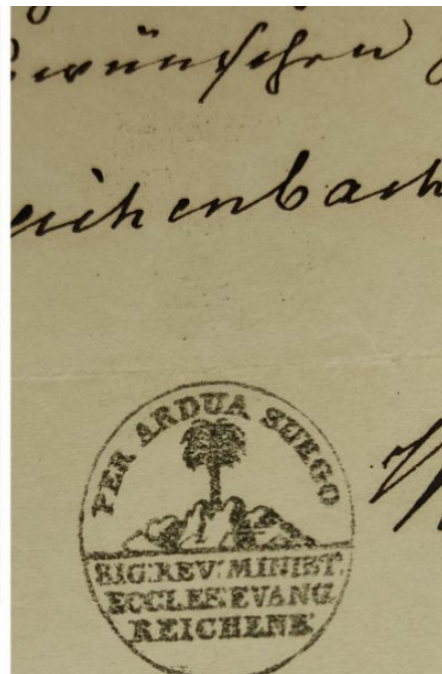 wünschen
eichenbach
PER ARDUA SURGO
SIG: REV: MINIST.
ECCLES: EVANG.
REICHENB.